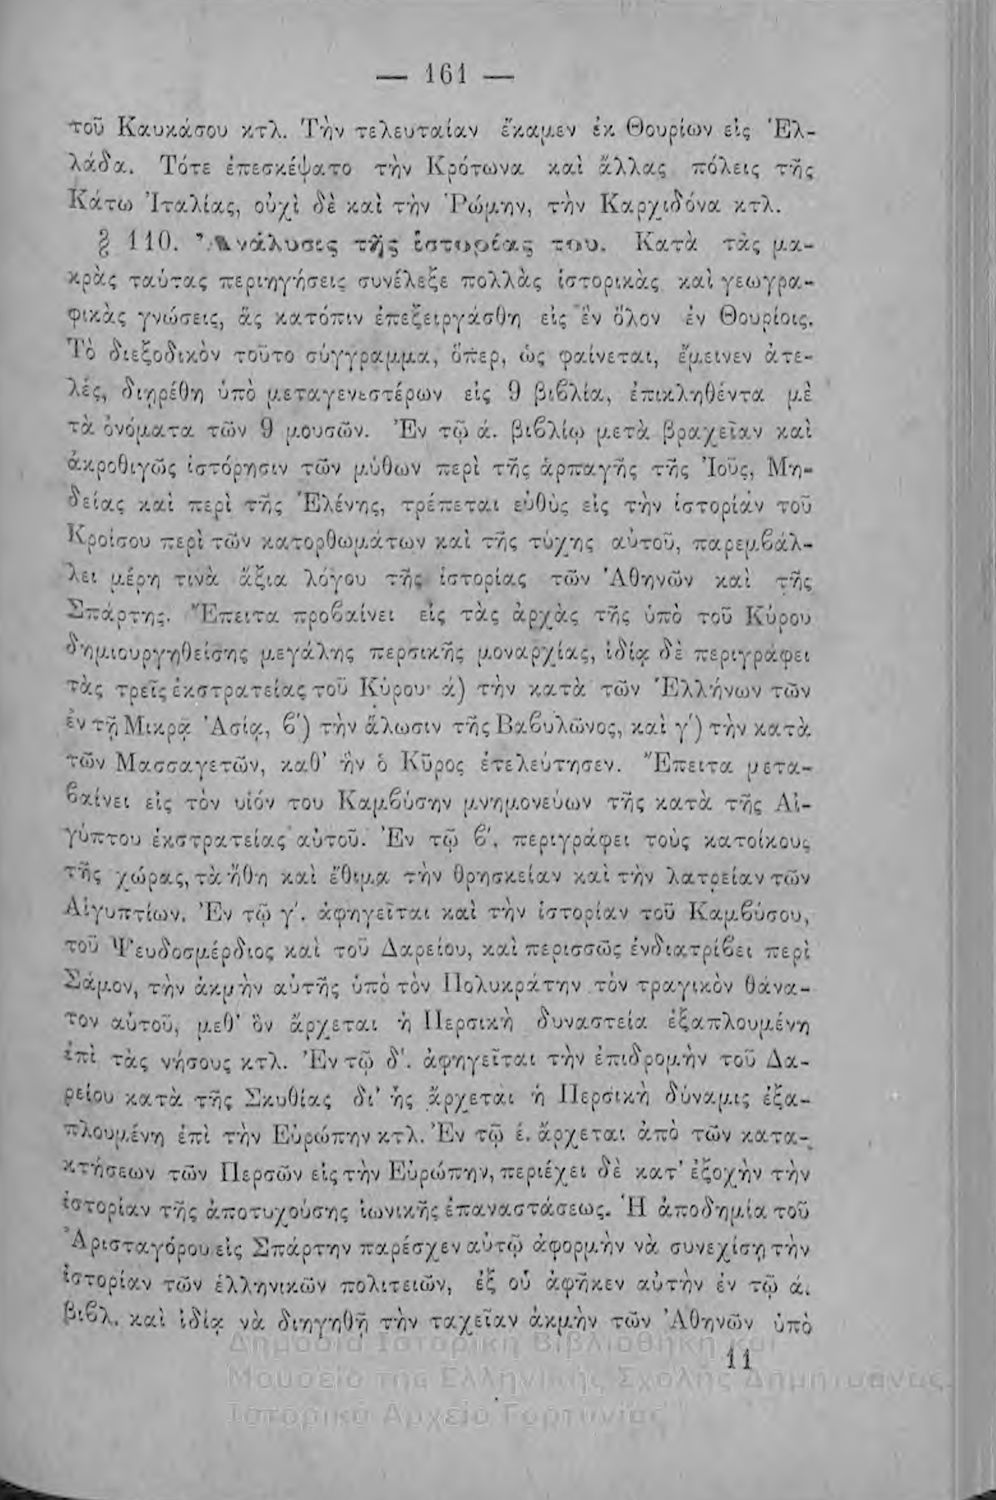 — 161 —
τοῦ Καυκάσου κτλ. Τὴν τελευταίαν ἔκαμεν ἐκ Θουρίων εἰς Ἑλ-
λάδα. Τότε ἐπεσκέψατο τὴν Κρότωνα καὶ ἄλλας πόλεις τῆς
Κάτω Ἰταλίας, οὐχὶ δὲ καὶ τὴν Ῥώμην, τὴν Καρχιδόνα κτλ.
§ 110. Ἀνάλυσις τῆς ἱστορίας του. Κατὰ τὰς μα-
κρὰς ταύτας περιηγήσεις συνέλεξε πολλὰς ἱστορικὰς καὶ γεωγρα-
φικὰς γνώσεις, ἃς κατόπιν ἐπεξειργάσθη εἰς ἓν ὅλον ἐν Θουρίοις.
Τὸ διεξοδικὸν τοῦτο σύγγραμμα, ὅπερ, ὡς φαίνεται, ἔμεινεν ἀτε-
λές, διῃρέθη ὑπὸ μεταγενεστέρων εἰς 9 βιβλία, ἐπικληθέντα μὲ
τὰ ὀνόματα τῶν 9 μουσῶν. Ἐν τῷ ά. βιβλίῳ μετὰ βραχεῖαν καὶ
ἀκροθιγῶς ἱστόρησιν τῶν μύθων περὶ τῆς ἁρπαγῆς τῆς Ἰοῦς, Μη-
δείας καὶ περὶ τῆς Ἑλένης, τρέπεται εὐθὺς εἰς τὴν ἱστορίαν τοῦ
Κροίσου περὶ τῶν κατορθωμάτων καὶ τῆς τύχης αὐτοῦ, παρεμβάλ-
λει μέρη τινὰ ἄξια λόγου τῆς ἱστορίας τῶν Ἀθηνῶν καὶ τῆς
Σπάρτης. Ἔπειτα προβαίνει εἰς τὰς ἀρχὰς τῆς ὑπὸ τοῦ Κύρου
δημιουργηθείσης μεγάλης περσικῆς μοναρχίας, ἰδίᾳ δὲ περιγράφει
τὰς τρεῖς ἐκστρατείας τοῦ Κύρου· ά) τὴν κατὰ τῶν Ἑλλήνων τῶν
ἐν τῇ Μικρᾷ Ἀσίᾳ, β΄) τὴν ἅλωσιν τῆς Βαβυλῶνος, καὶ γ΄) τὴν κατὰ
τῶν Μασσαγετῶν, καθ' ἣν ὁ Κῦρος ἐτελεύτησεν. Ἔπειτα μετα-
βαίνει εἰς τὸν υἱόν του Καμβύσην μνημονεύων τῆς κατὰ τῆς Αἰ-
γύπτου ἐκστρατείας αὐτοῦ. Ἐν τῷ β΄. περιγράφει τοὺς κατοίκους
τῆς χώρας, τὰ ἤθη καὶ ἔθιμα τὴν θρησκείαν καὶ τὴν λατρείαν τῶν
Αἰγυπτίων. Ἐν τῷ γ΄. ἀφηγεῖται καὶ τὴν ἱστορίαν τοῦ Καμβύσου,
τοῦ Ψευδοσμέρδιος καὶ τοῦ Δαρείου, καὶ περισσῶς ἐνδιατρίβει περὶ
Σάμον, τὴν ἀκμὴν αὐτῆς ὑπὸ τὸν Πολυκράτην τὸν τραγικὸν θάνα-
τον αὐτοῦ, μεθ' ὃν ἄρχεται ἡ Περσικὴ δυναστεία ἐξαπλουμένη
ἐπὶ τὰς νήσους κτλ. Ἐν τῷ δ΄. ἀφηγεῖται τὴν ἐπιδρομὴν τοῦ Δα-
ρείου κατὰ τῆς Σκυθίας δι' ἧς ἄρχεται ἡ Περσικὴ δύναμις ἐξα-
πλουμένη ἐπὶ τὴν Εὐρώπην κτλ. Ἐν τῷ έ. ἄρχεται ἀπὸ τῶν κατα-
κτήσεων τῶν Περσῶν εἰς τὴν Εὐρώπην, περιέχει δὲ κατ' ἐξοχὴν τὴν
ἱστορίαν τῆς ἀποτυχούσης ἰωνικῆς ἐπαναστάσεως. Ἡ ἀποδημία τοῦ
Ἀρισταγόρου εἰς Σπάρτην παρέσχεν αὐτῷ ἀφορμὴν νὰ συνεχίσῃ τὴν
ἱστορίαν τῶν ἑλληνικῶν πολιτειῶν, ἐξ οὗ ἀφῆκεν αὐτὴν ἐν τῷ ά.
βιβλ. καὶ ἰδίᾳ νὰ διηγηθῇ τὴν ταχεῖαν ἀκμὴν τῶν Ἀθηνῶν ὑπὸ
11
Δημόσια Ιστορική Βιβλιοθήκη και
Μουσείο της Ελληνικής Σχολής Δημητσάνας,
Ιστορικό Αρχείο Γορτυνίας